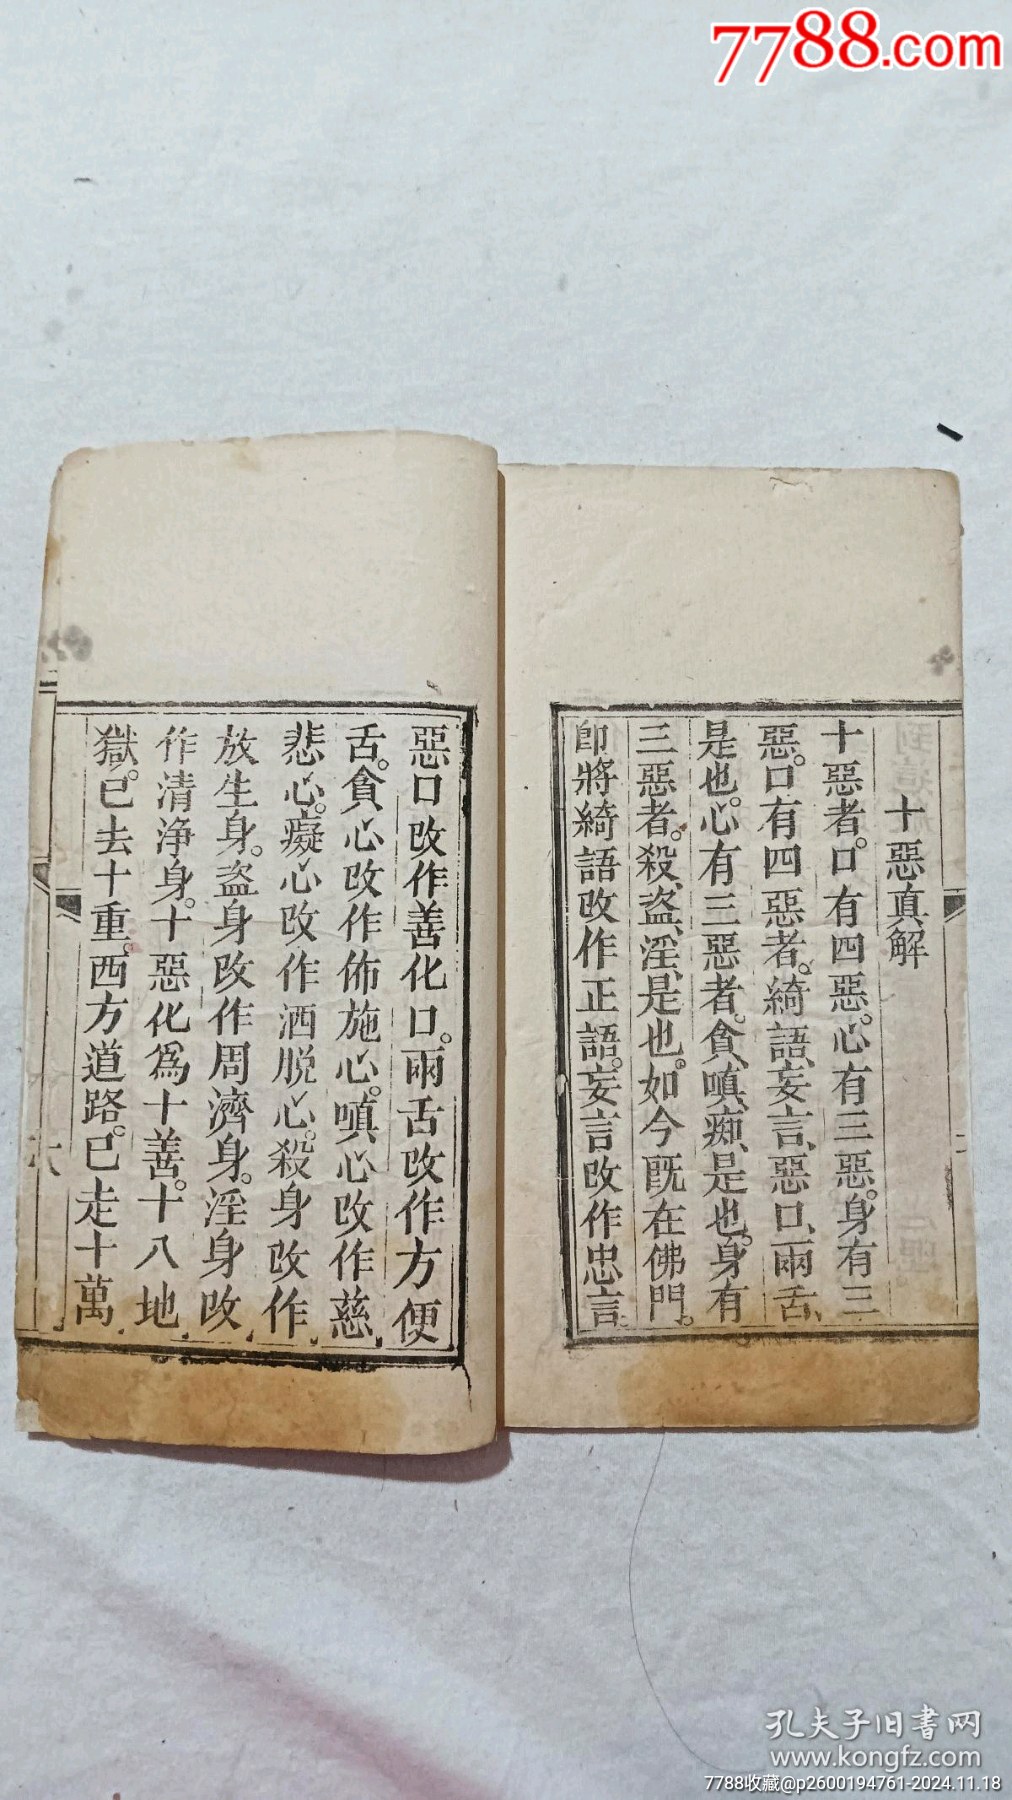 7788.com
十惡真解
十惡者。口有四惡。心有三惡。身有三
惡。口有四惡者。綺語、妄言、惡口、兩舌、
是也。心有三惡者。貪、嗔、痴、是也。身有
三惡者。殺、盜、淫、是也。如今既在佛門。
即將綺語改作正語。妄言改作忠言。
惡口改作善化口。兩舌改作方便
舌。貪心改作佈施心。嗔心改作慈
悲心。癡心改作洒脱心。殺身改作
放生身。盜身改作周濟身。淫身改
作清浄身。十惡化為十善。十八地
獄。已去十重。西方道路。已走十萬
孔夫子旧書网
www.kongfz.com
7788收藏@p2600194761-2024.11.18